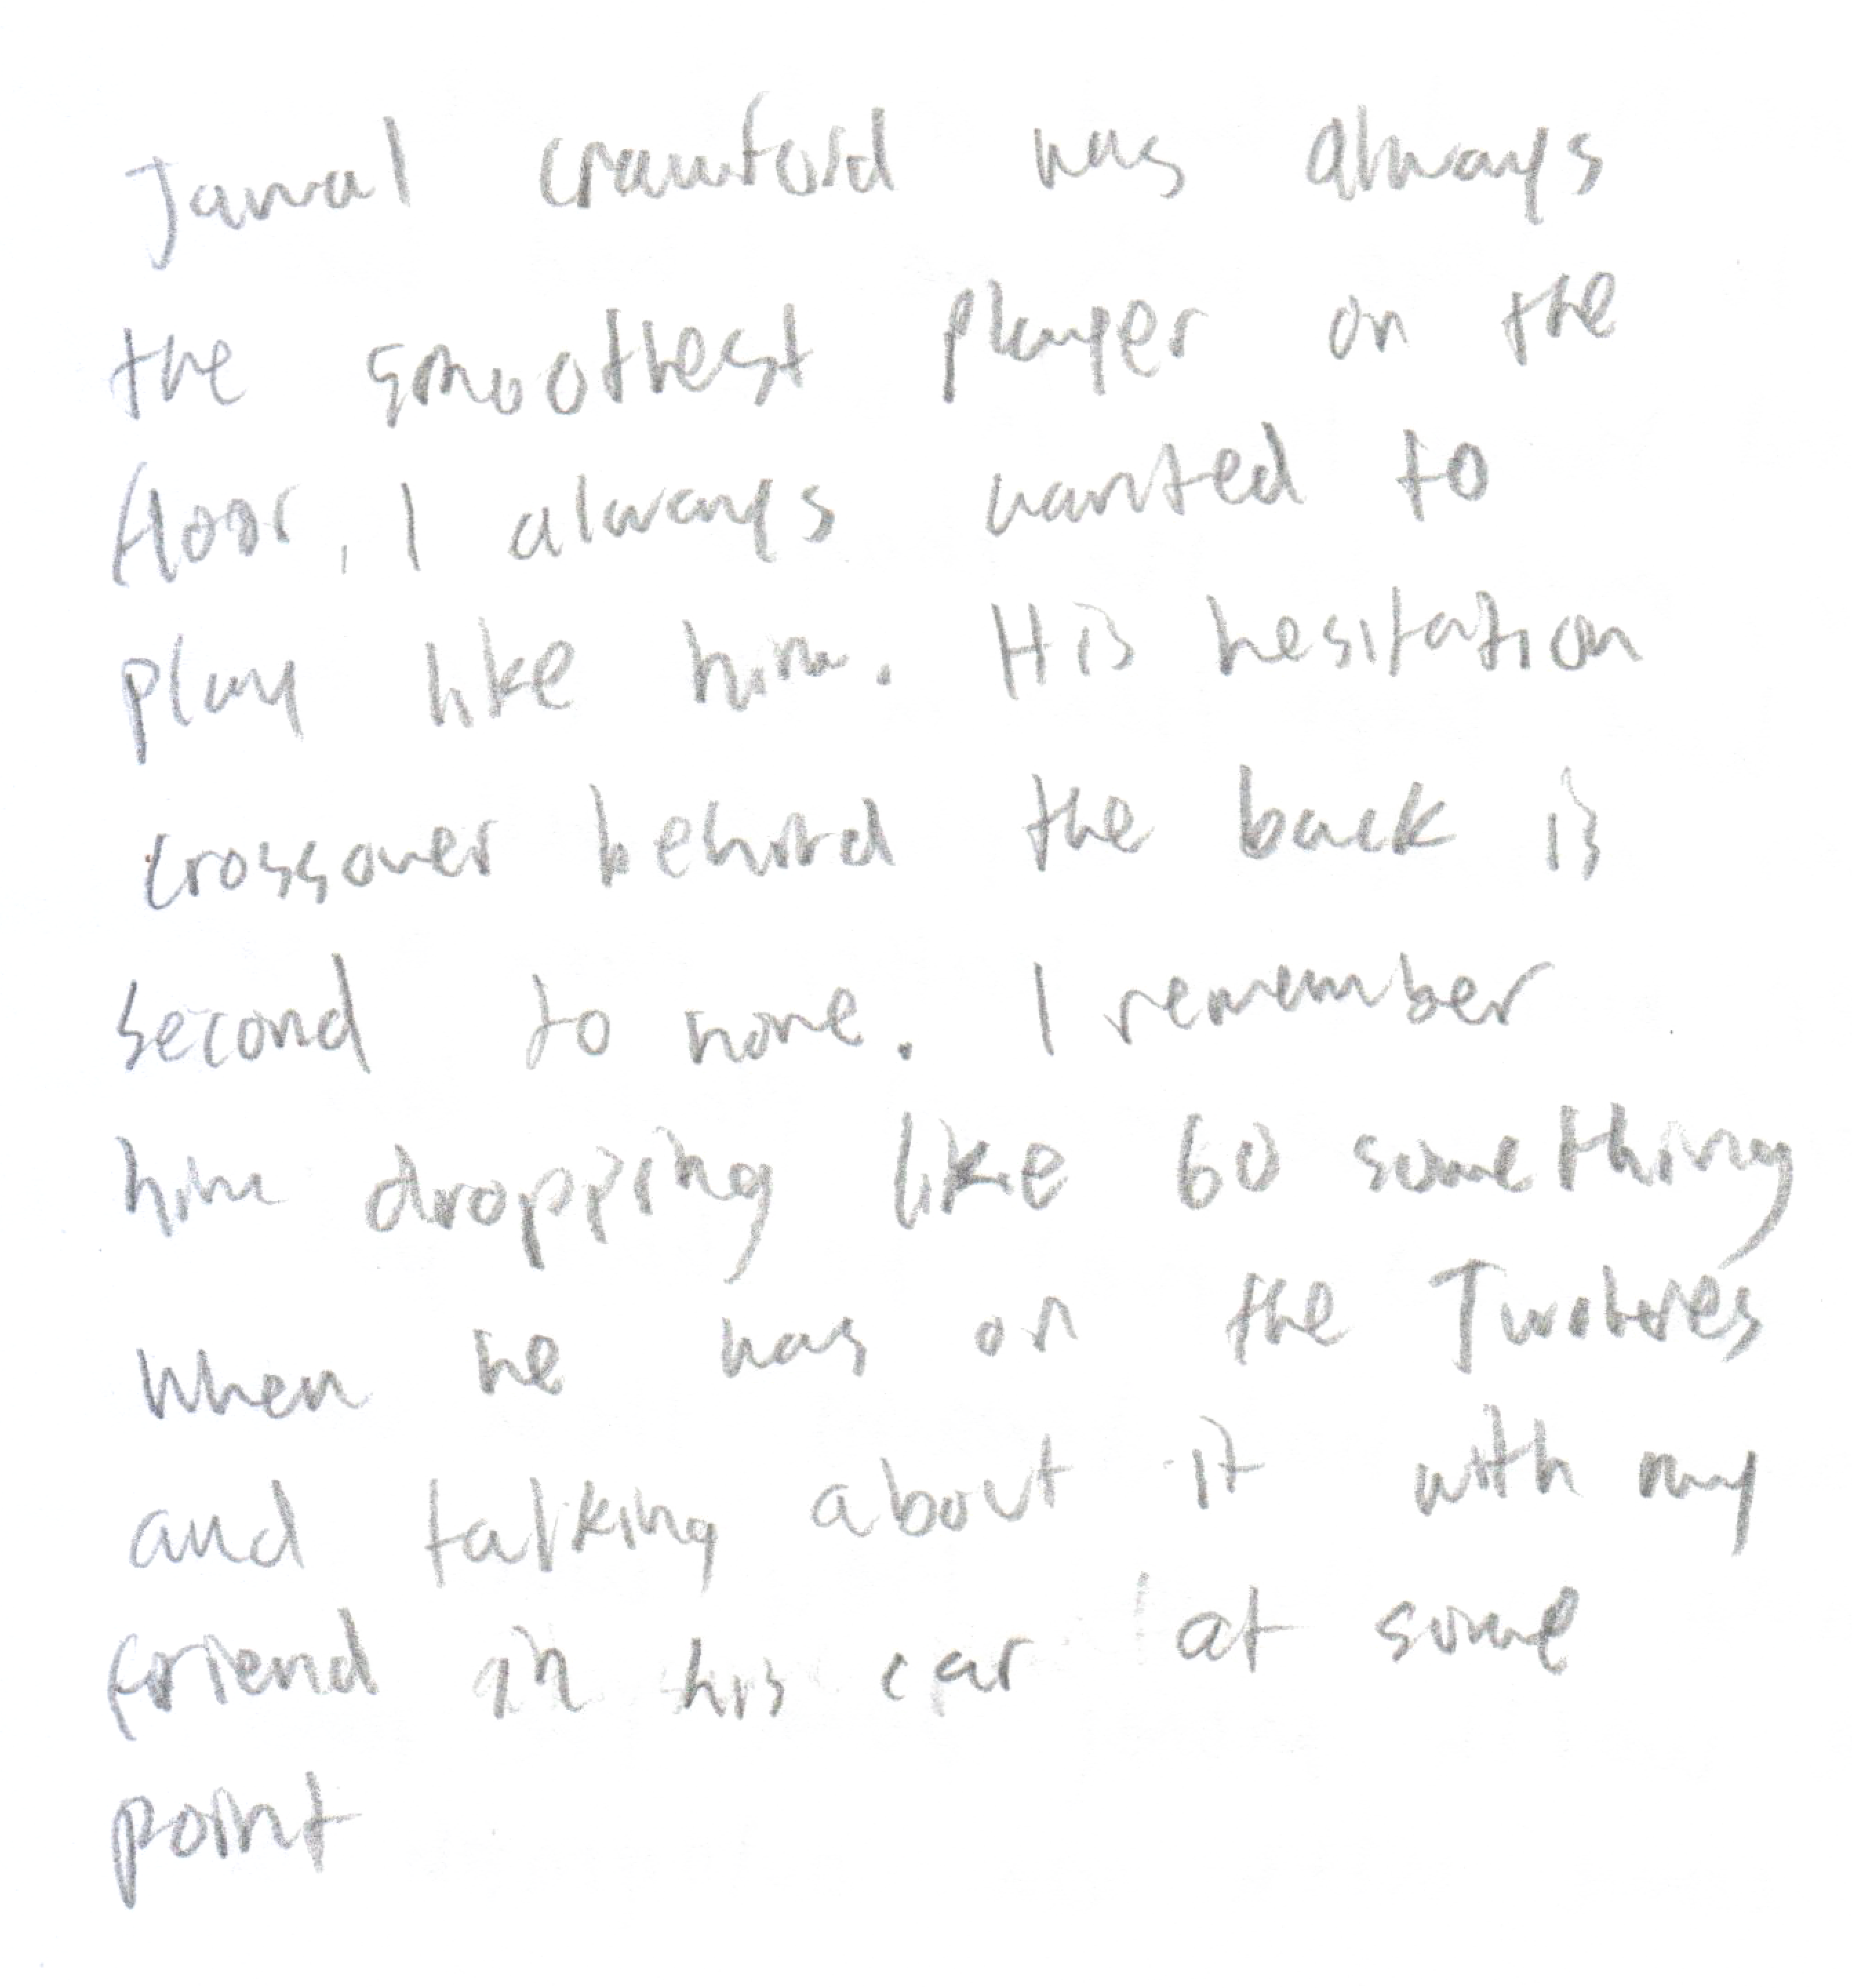 Jamal crawford was always
the smoothest player on the
floor, I always wanted to
play like him. His hesitation
crossover behind the back is
second to none. I remember
him dropping like 60 something
when he was on the Twolves
and talking about it with my
friend in his car at some
point